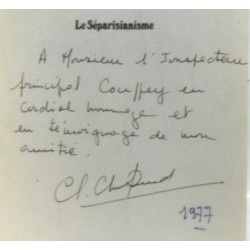 Le Séparisianisme
A Monsieur l'Inspecteur
principal Couppey en
cordial hommage et
en témoignage de mon
amitié.
1977